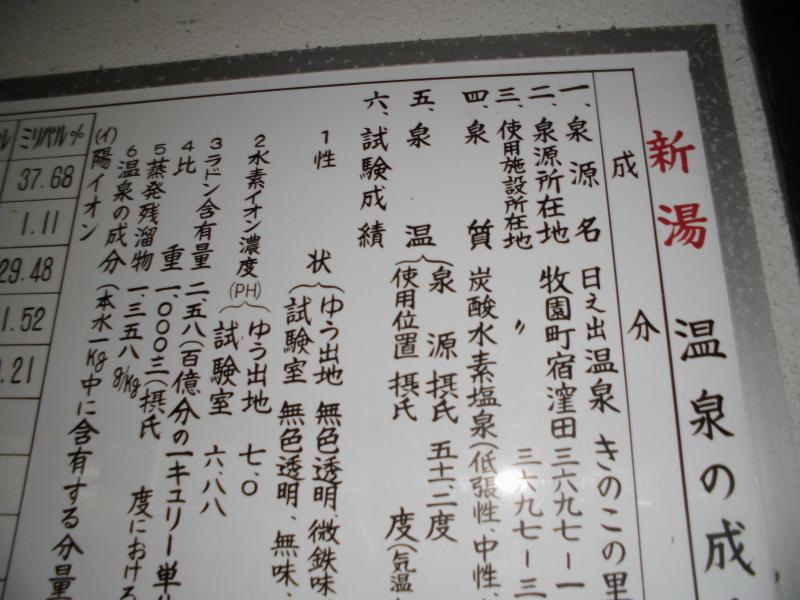 新湯 温泉の成
成 分
一、泉源名 日之出温泉 きのこの里
二、泉源所在地 牧園町宿窪田三六九七ー一
三、使用施設所在地 〃 三六九七ー三
四、泉質 炭酸水素塩泉(低張性、中性、
五、泉温 泉源 摂氏 五十二度
使用位置 摂氏 度(気温
六、試験成績
1 性状 ゆう出地 無色透明、微鉄味
試験室 無色透明、無味、
2 水素イオン濃度(PH) ゆう出地 七.〇
試験室 六.八八
3 ラドン含有量 二.五八(百億分の一キュリー単
4 比重 一.〇〇〇三(摂氏 度における
5 蒸発残溜物 一.三五八g/kg
6 温泉の成分(本水一Kg中に含有する分量
(イ)陽イオン
ミリバル%
37.68
1.11
29.48
1.52
.21